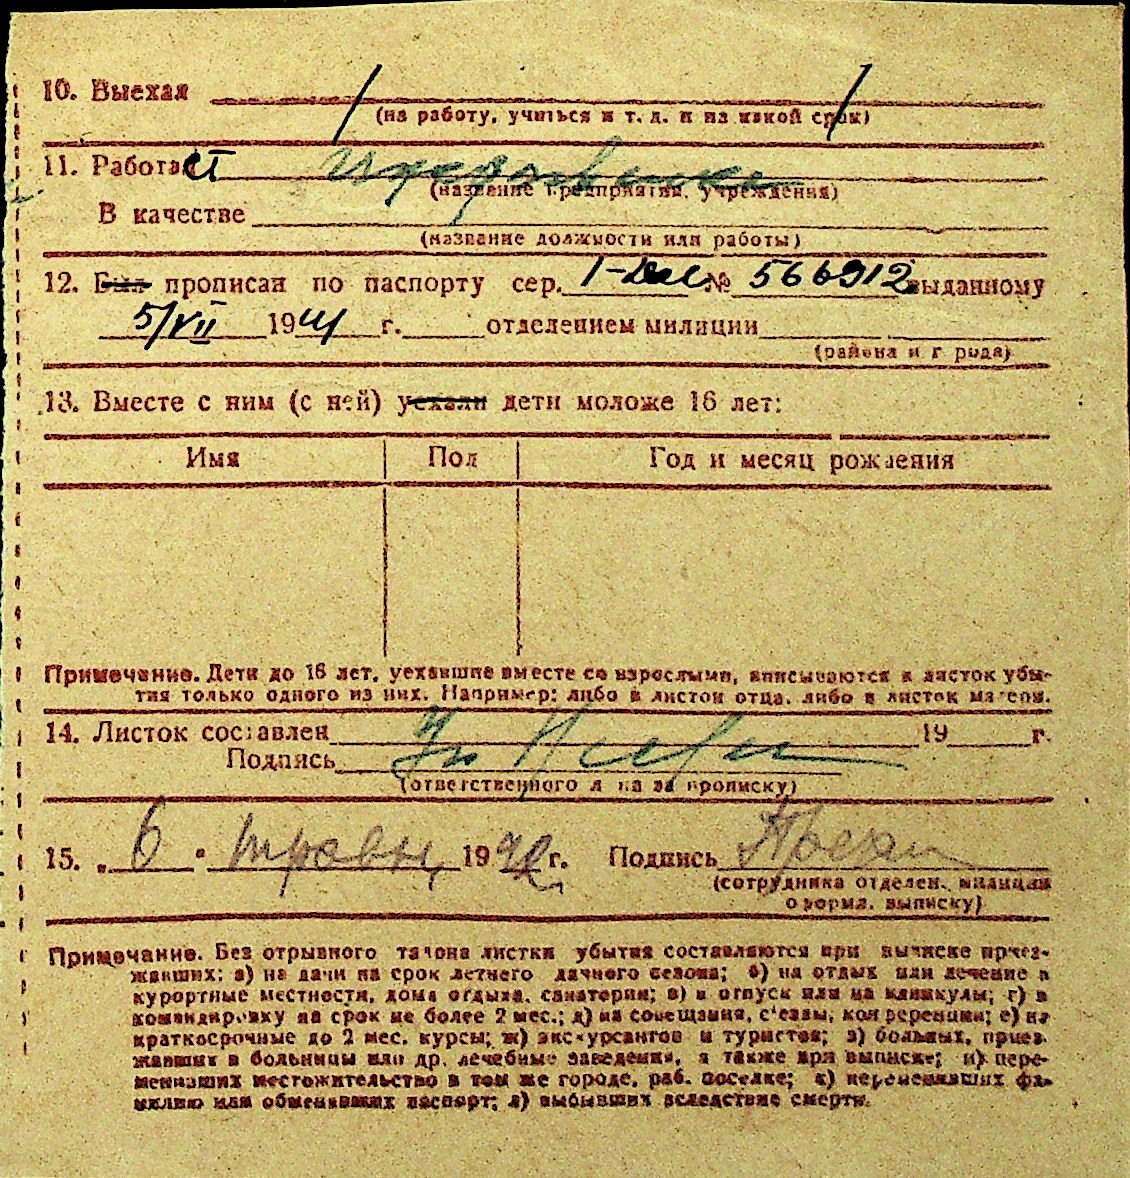 10. Выехал
(на работу, учиться и т. д. и на какой срок)
11. Работает
(название предприятия, учреждения)
В качестве
(название должности или работы)
12. Был прописан по паспорту сер. № 566912 выданному
5/VII 1941 г. отделением милиции
(района и города)
13. Вместе с ним (с ней) уехали дети моложе 16 лет:
Имя Пол Год и месяц рождения
Примечание. Дети до 16 лет, уехавшие вместе со взрослыми, вписываются в листок убы-
тия только одного из них. Например: либо в листок отца, либо в листок матери.
14. Листок составлен 19 г.
Подпись
(ответственного лица за прописку)
15. „ 6 " травня 1942 г. Подпись
(сотрудника отделен. милиции
оформл. выписку)
Примечание. Без отрывного талона листки убытия составляются при выписке приез-
жавших: а) на дачи на срок летнего дачного сезона; б) на отдых или лечение в
курортные местности, дома отдыха, санатории; в) в отпуск или на каникулы; г) в
командировку на срок не более 2 мес.; д) на совещания, съезды, конференции; е) на
краткосрочные до 2 мес. курсы; ж) экскурсантов и туристов; з) больных, приез-
жавших в больницы или др. лечебные заведения, а также при выписке; и) пере-
менивших местожительство в том же городе, раб. поселке; к) переменивших фа-
милию или обменивших паспорт; л) выбывших вследствие смерти.